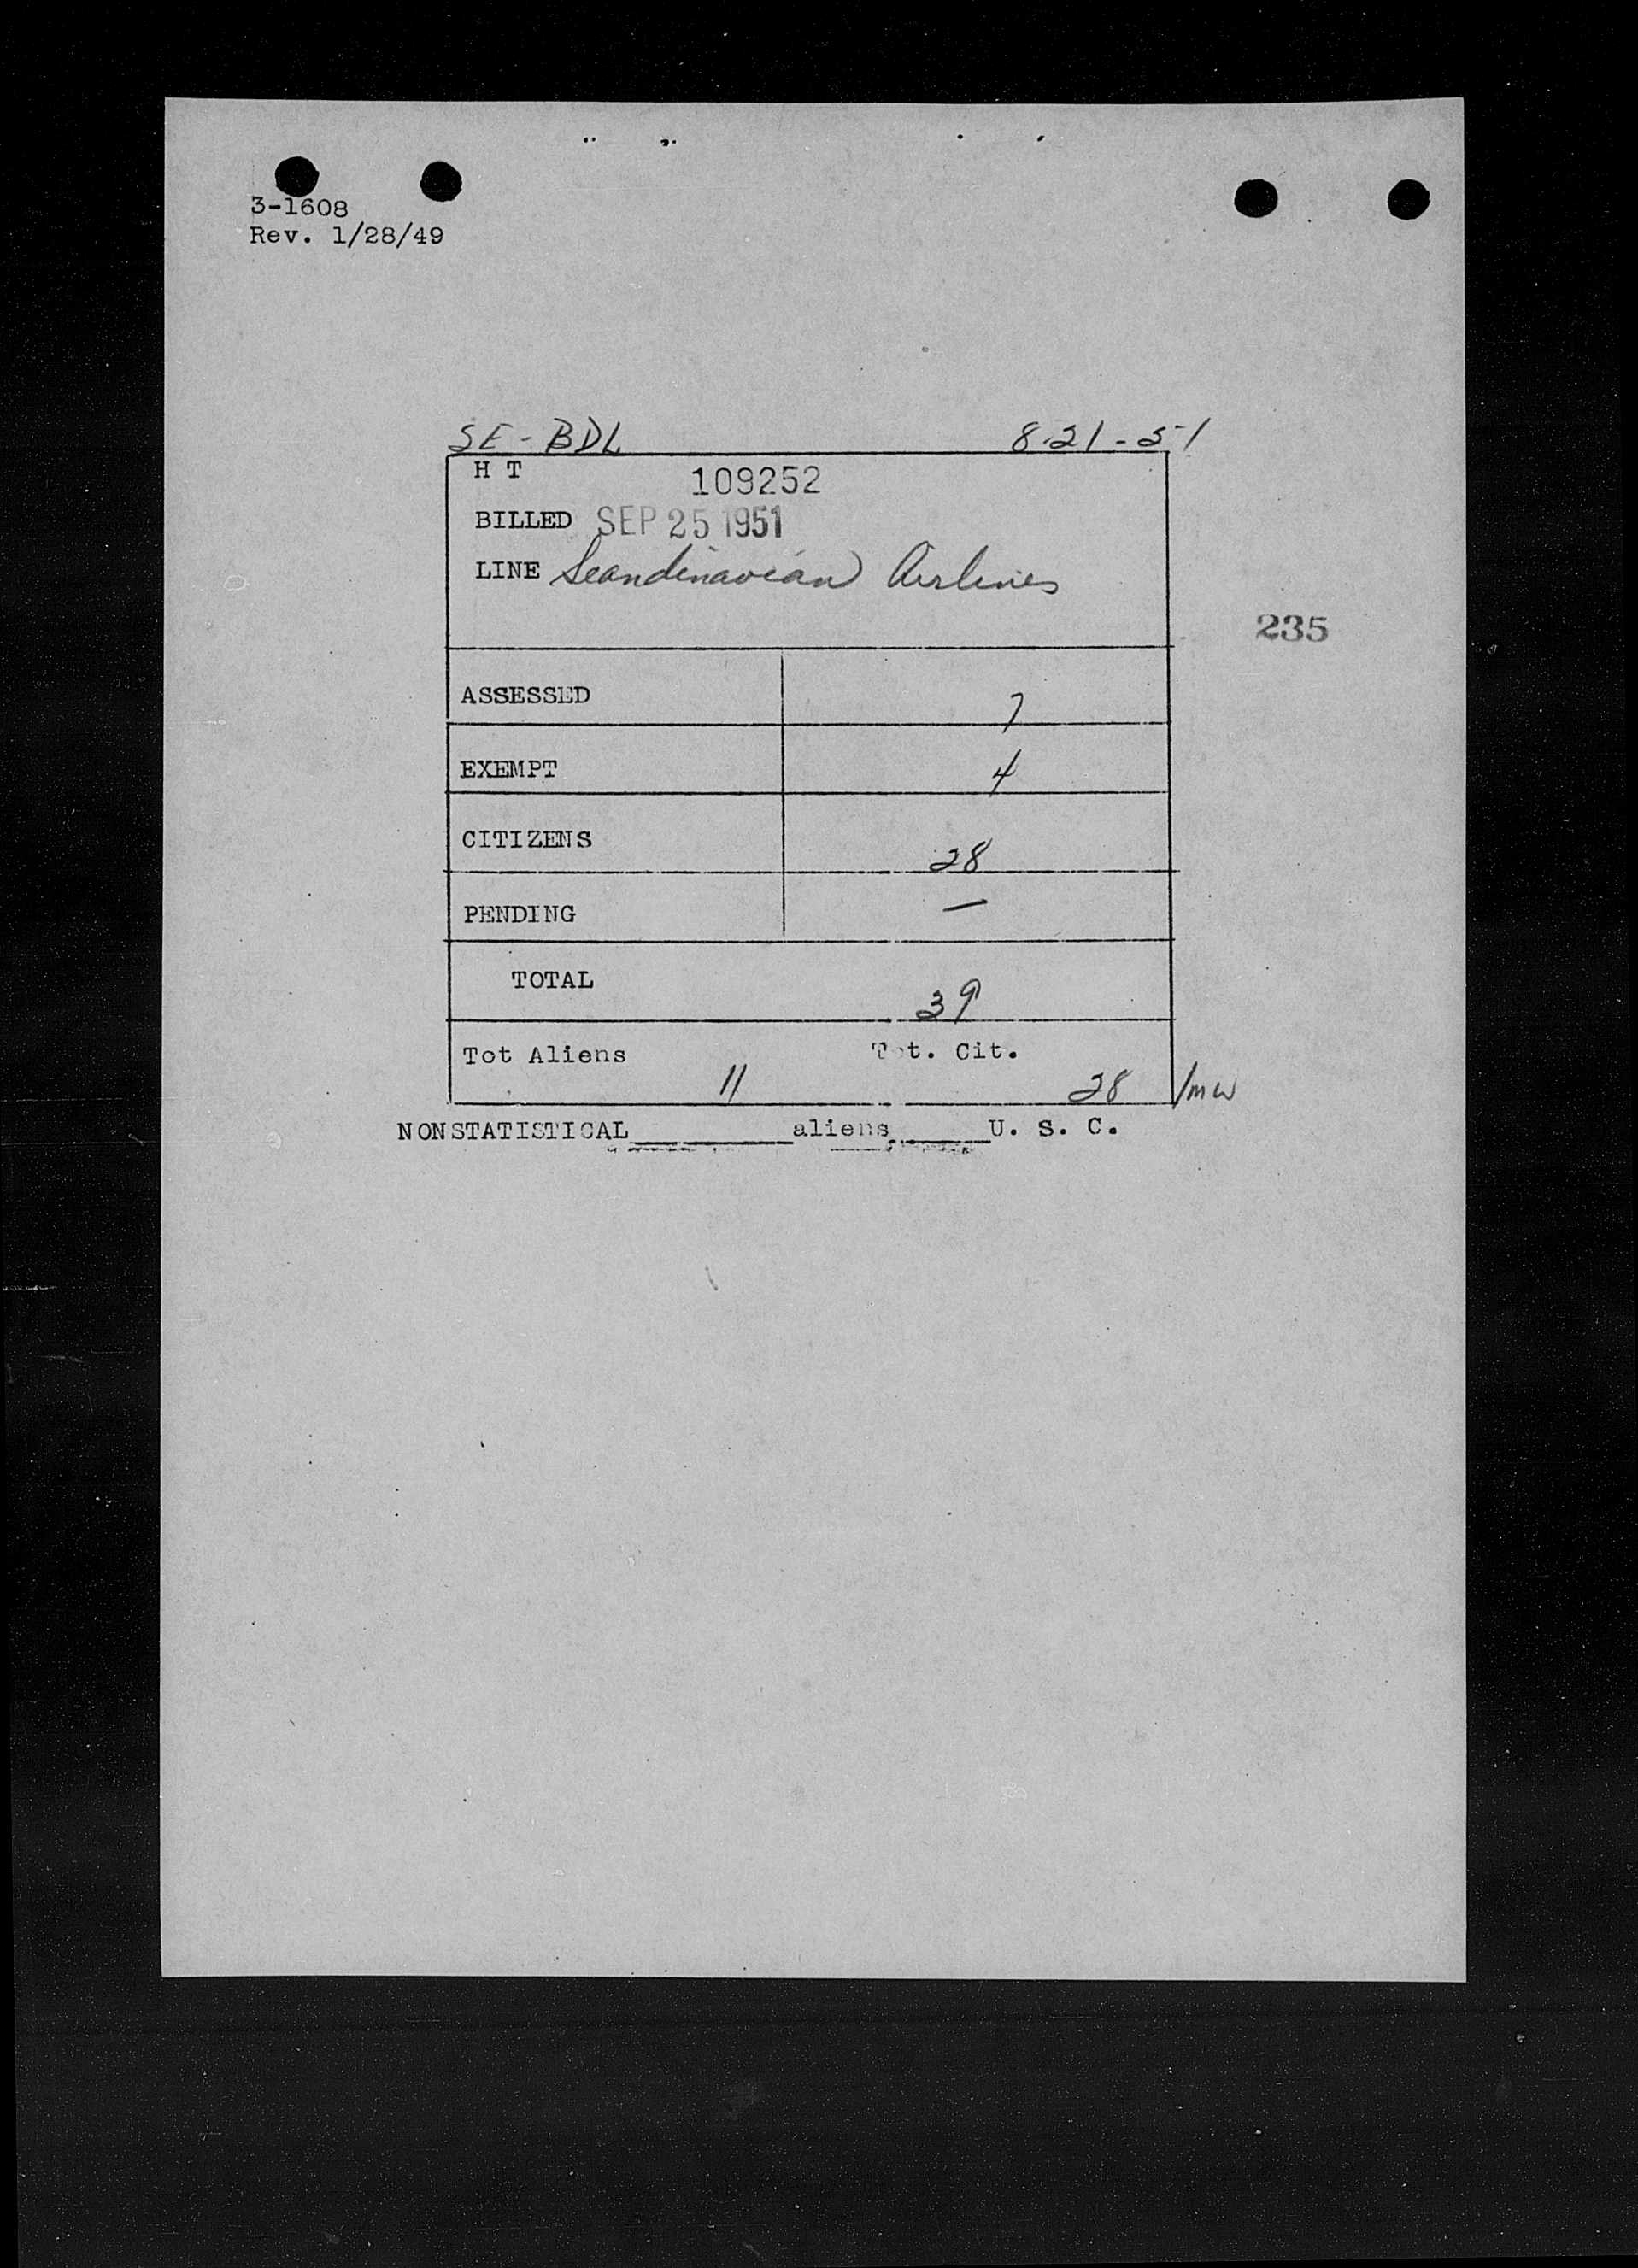 3-1608
Rev. 1/28/49
SE-BDL 8-21-51
H T 109252
BILLED SEP 25 1951
LINE Scandinavian Airlines
235
ASSESSED 7
EXEMPT 4
CITIZENS 28
PENDING —
TOTAL 39
Tot Aliens Tot. Cit.
11 28 /mw
NONSTATISTICAL__________aliens______U. S. C.